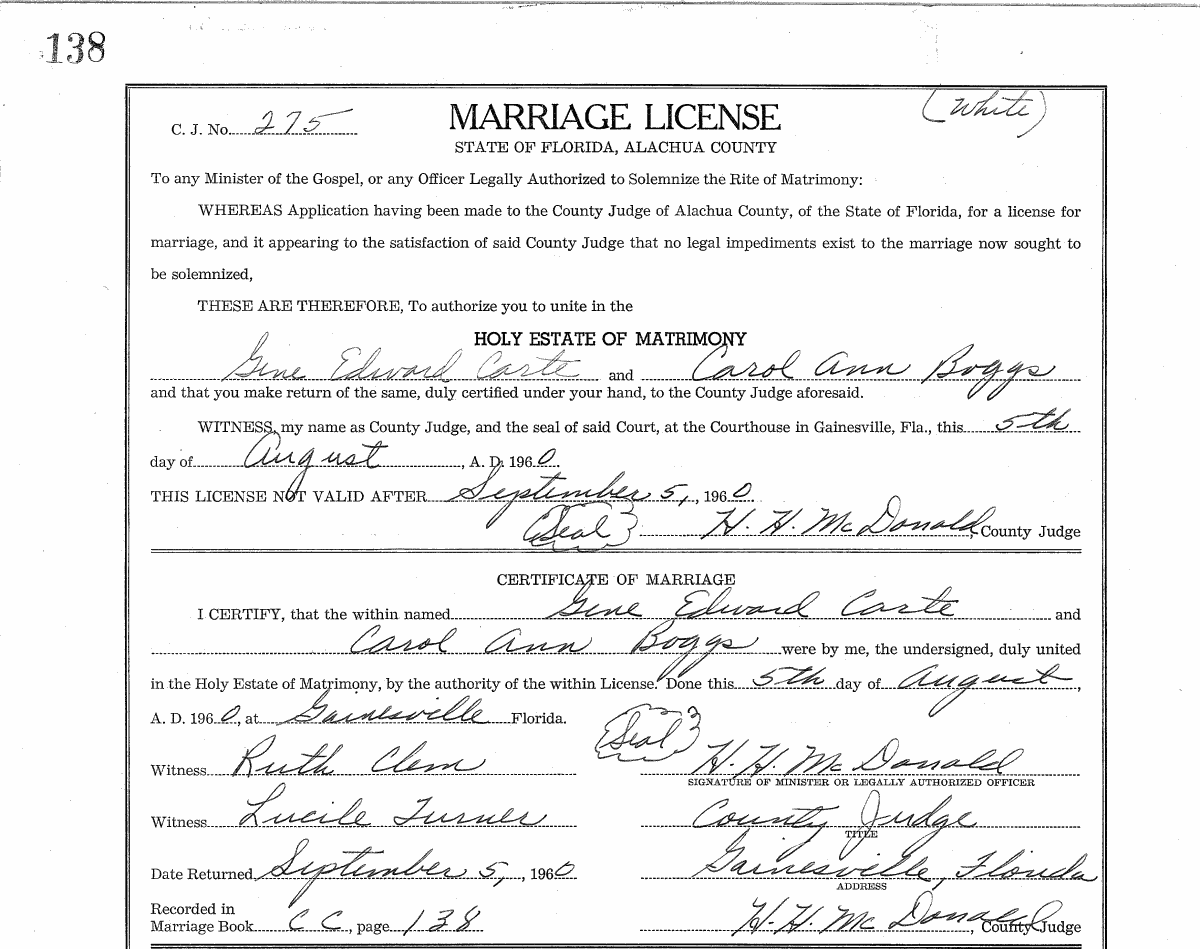 138
C. J. No. 275
MARRIAGE LICENSE
(White)
STATE OF FLORIDA, ALACHUA COUNTY
To any Minister of the Gospel, or any Officer Legally Authorized to Solemnize the Rite of Matrimony:
WHEREAS Application having been made to the County Judge of Alachua County, of the State of Florida, for a license for
marriage, and it appearing to the satisfaction of said County Judge that no legal impediments exist to the marriage now sought to
be solemnized,
THESE ARE THEREFORE, To authorize you to unite in the
HOLY ESTATE OF MATRIMONY
Gene Edward Carte and Carol Ann Boggs
and that you make return of the same, duly certified under your hand, to the County Judge aforesaid.
WITNESS, my name as County Judge, and the seal of said Court, at the Courthouse in Gainesville, Fla., this 5th
day of August, A. D. 1960.
THIS LICENSE NOT VALID AFTER September 5, , 1960
(Seal) H. H. McDonald, County Judge
CERTIFICATE OF MARRIAGE
I CERTIFY, that the within named Gene Edward Carte and
Carol Ann Boggs were by me, the undersigned, duly united
in the Holy Estate of Matrimony, by the authority of the within License. Done this 5th day of August,
A. D. 1960, at Gainesville Florida.
(Seal)
Witness Ruth Clem H. H. McDonald
SIGNATURE OF MINISTER OR LEGALLY AUTHORIZED OFFICER
Witness Lucile Turner County Judge
TITLE
Date Returned September 5, , 1960 Gainesville, Florida
ADDRESS
Recorded in
Marriage Book CC, page 138 H. H. McDonald, County Judge